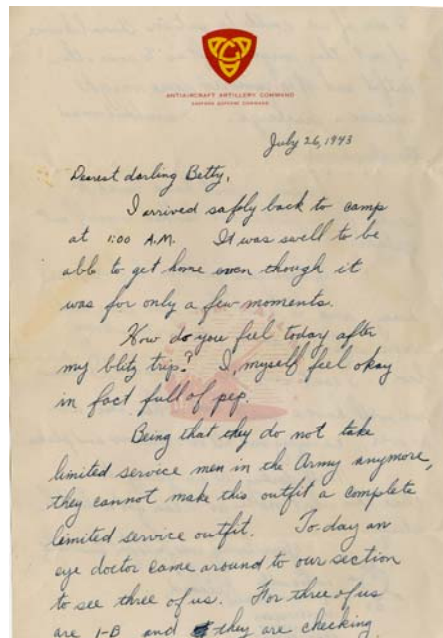 ANTIAIRCRAFT ARTILLERY COMMAND
EASTERN DEFENSE COMMAND
July 26, 1943
Dearest darling Betty,
I arrived safely back to camp
at 1:00 A.M. It was swell to be
able to get home even though it
was for only a few moments.
How do you feel today after
my blitz trip? I, myself feel okay
in fact full of pep.
Being that they do not take
limited service men in the Army anymore,
they cannot make this outfit a complete
limited service outfit. To-day an
eye doctor came around to our section
to see three of us. For three of us
are 1-B and they are checking